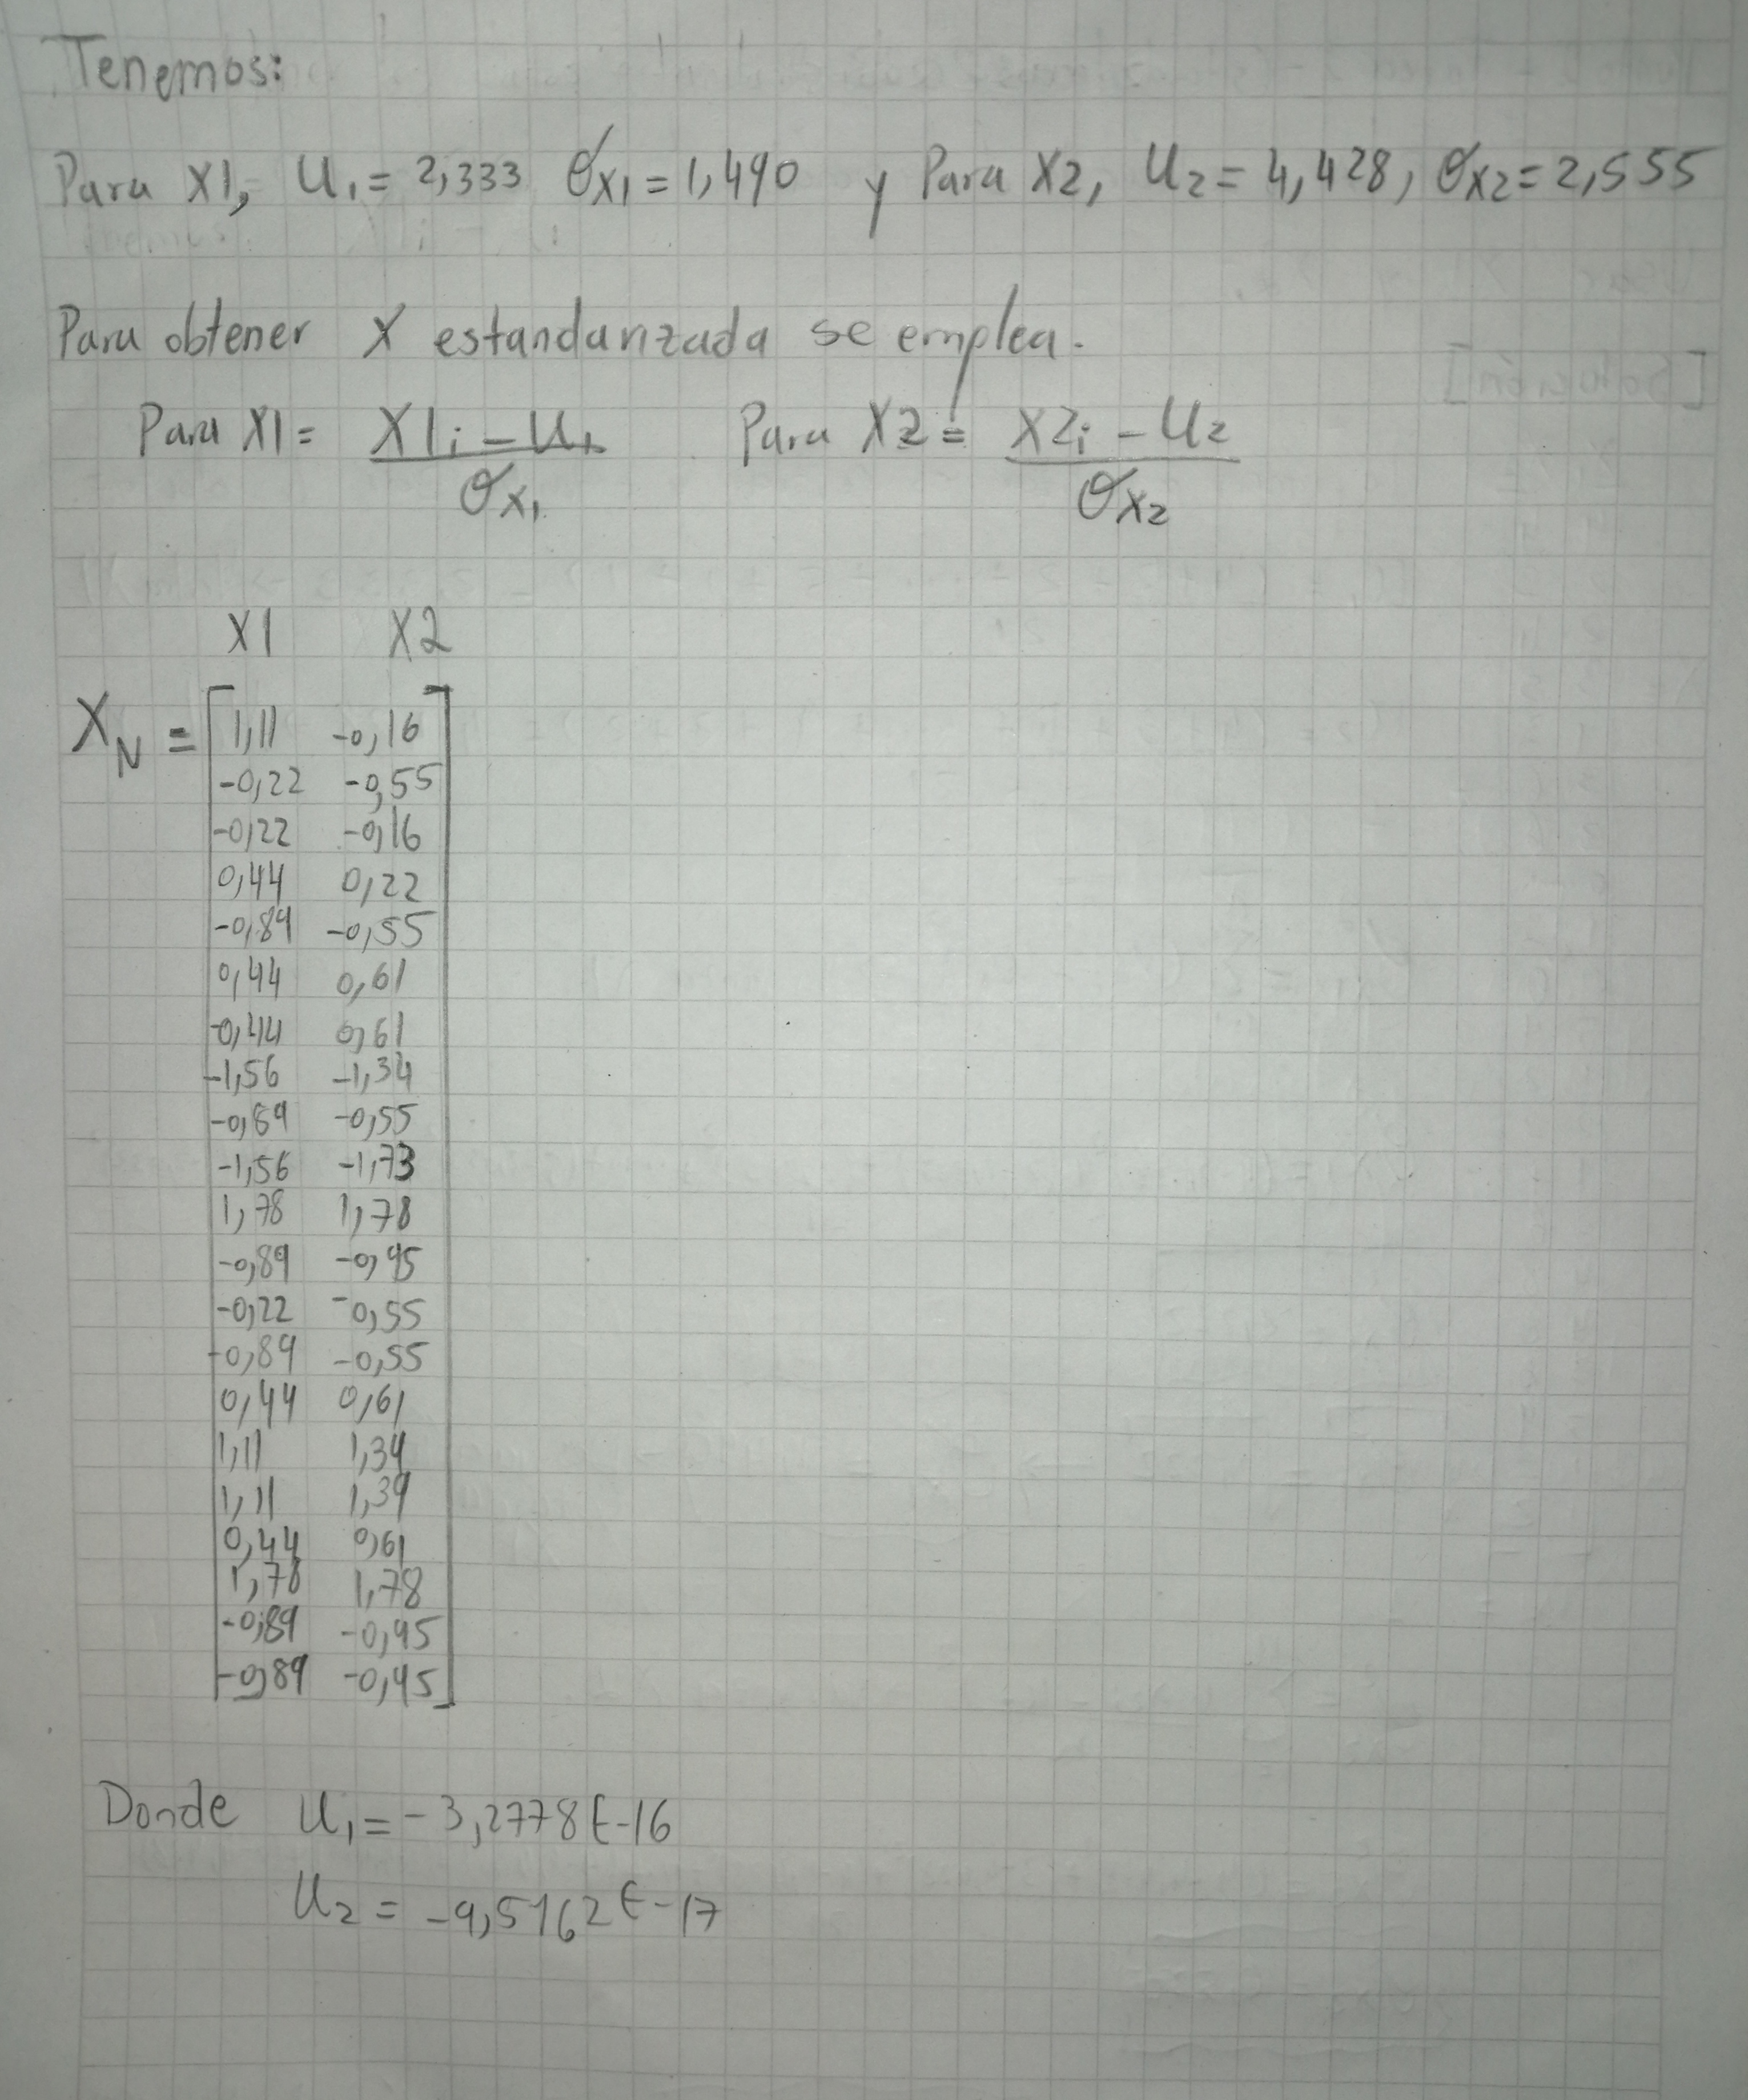 Tenemos:
Para X1, U₁ = 2,333 σx₁ = 1,490 y Para X2, U₂ = 4,428, σx₂ = 2,555
Para obtener X estandarizada se emplea.
Para X1 = (X1i - U₁) / σx₁ Para X2 = (X2i - U₂) / σx₂
X1 X2
X_N = [1,11 -0,16]
-0,22 -0,55
-0,22 -0,16
0,44 0,22
-0,89 -0,55
0,44 0,61
-0,44 0,61
-1,56 -1,34
-0,89 -0,55
-1,56 -1,73
1,78 1,78
-0,89 -0,95
-0,22 -0,55
-0,89 -0,55
0,44 0,61
1,11 1,34
1,11 1,39
0,44 0,61
1,78 1,78
-0,89 -0,95
-0,89 -0,95
Donde U₁ = -3,2778E-16
U₂ = -9,5162E-17